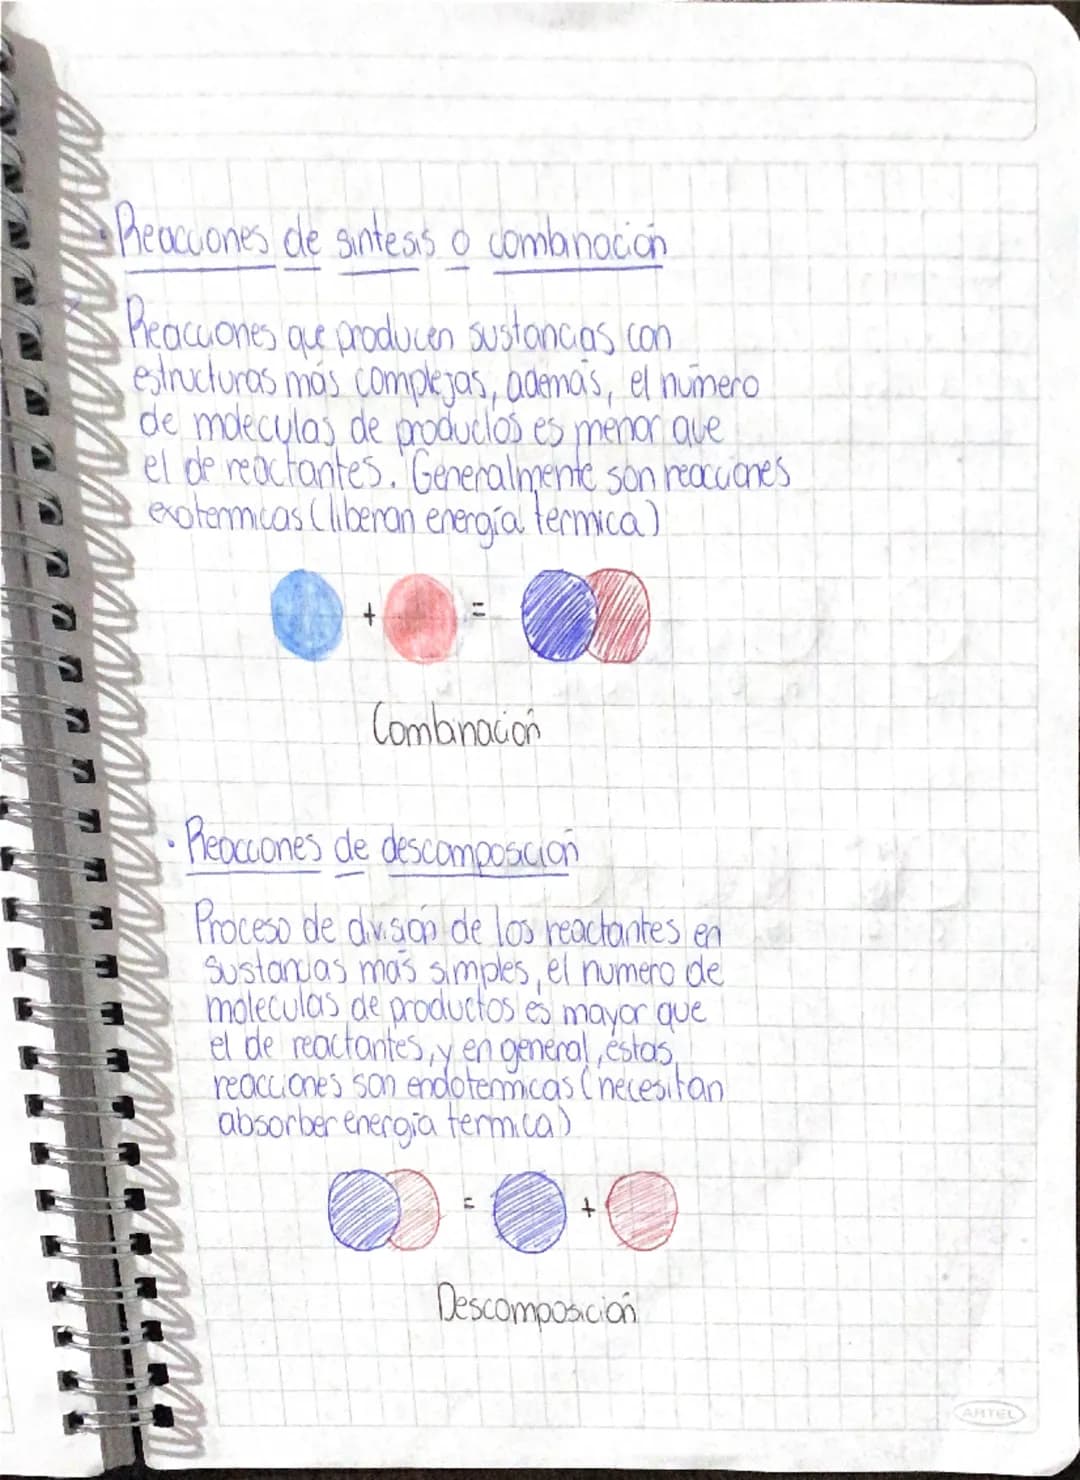 · Reacciones de sintesis o combinación
Reacciones que producen sustancias con
estructuras más complejas, además, el número
de moleculas de productos es menor que
el de reactantes. Generalmente son reacciones
exotermicas (liberan energía termica)
+ =
Combinación
· Reacciones de descomposición
Proceso de división de los reactantes en
sustancias más simples, el numero de
moleculas de productos es mayor que
el de reactantes, y en general, éstas
reacciones son endotermicas (necesitan
absorber energía termica)
= +
Descomposición
ARTEL